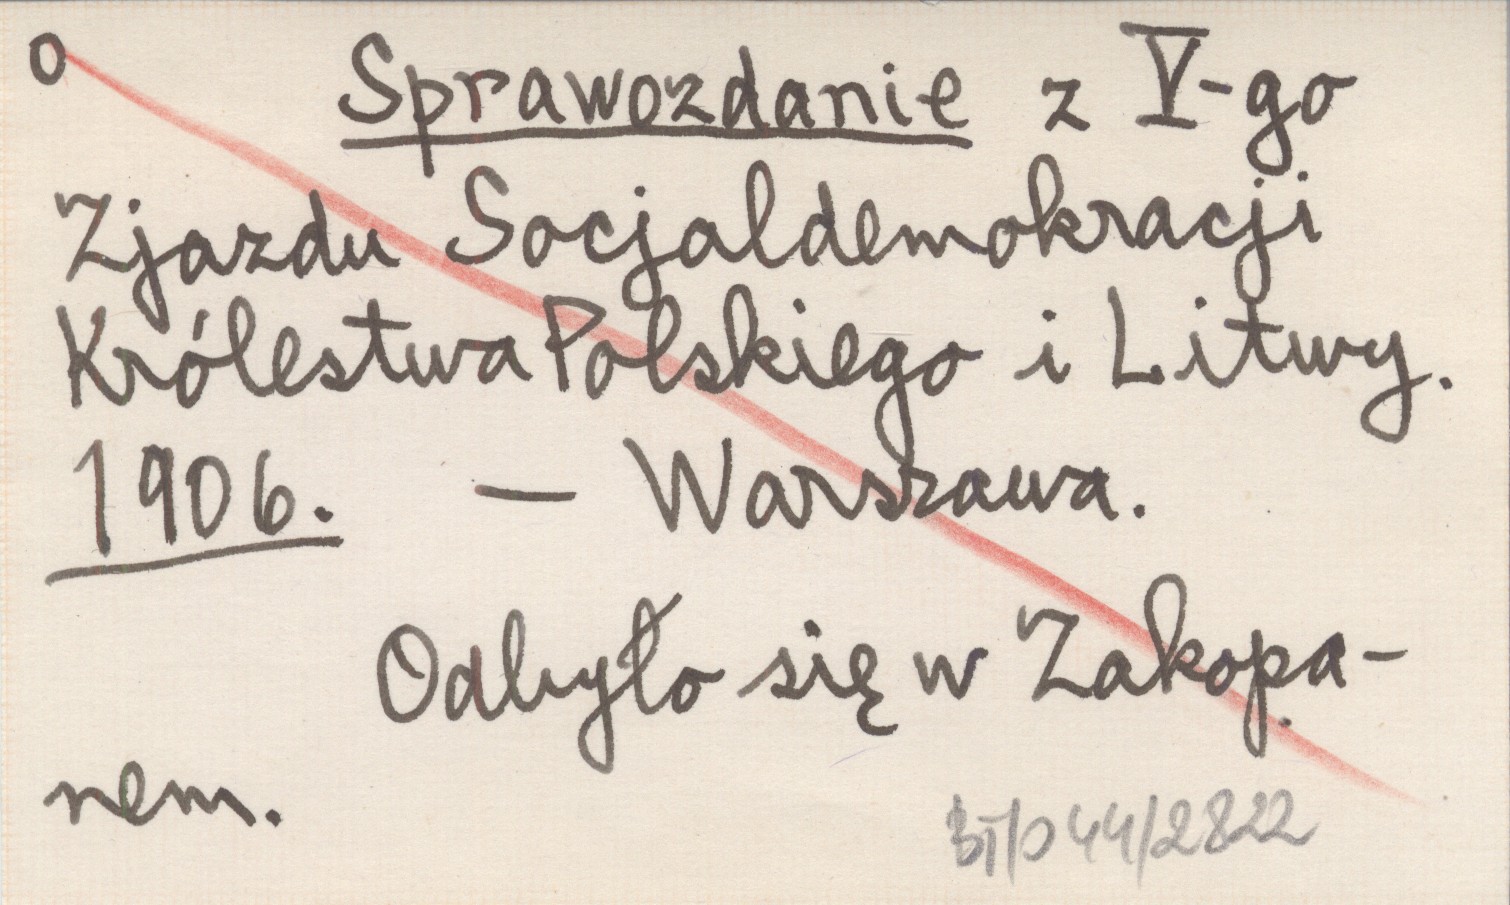 o Sprawozdanie z V-go
Zjazdu Socjaldemokracji
Królestwa Polskiego i Litwy.
1906. — Warszawa.
Odbyło się w Zakopa-
nem.
BT/O 44/2822